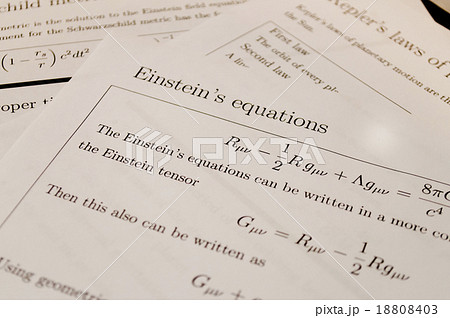 child m
metric is the solution to the Einstein field equ
ment for the Schwarzschild metric has the f
(1 − r_s/r) c²dt²
oper ti
Kepler's laws of
Kepler's laws of planetary motion are th
the Sun.
First law
The orbit of every pl
Second law
A lin
Einstein's equations
R_μν − 1/2 R g_μν + Λg_μν = 8πG/c⁴
The Einstein's equations can be written in a more co
the Einstein tensor
G_μν = R_μν − 1/2 R g_μν
Then this also can be written as
G_μν +
Using geometri
PIXTA
pixta.jp - 18808403